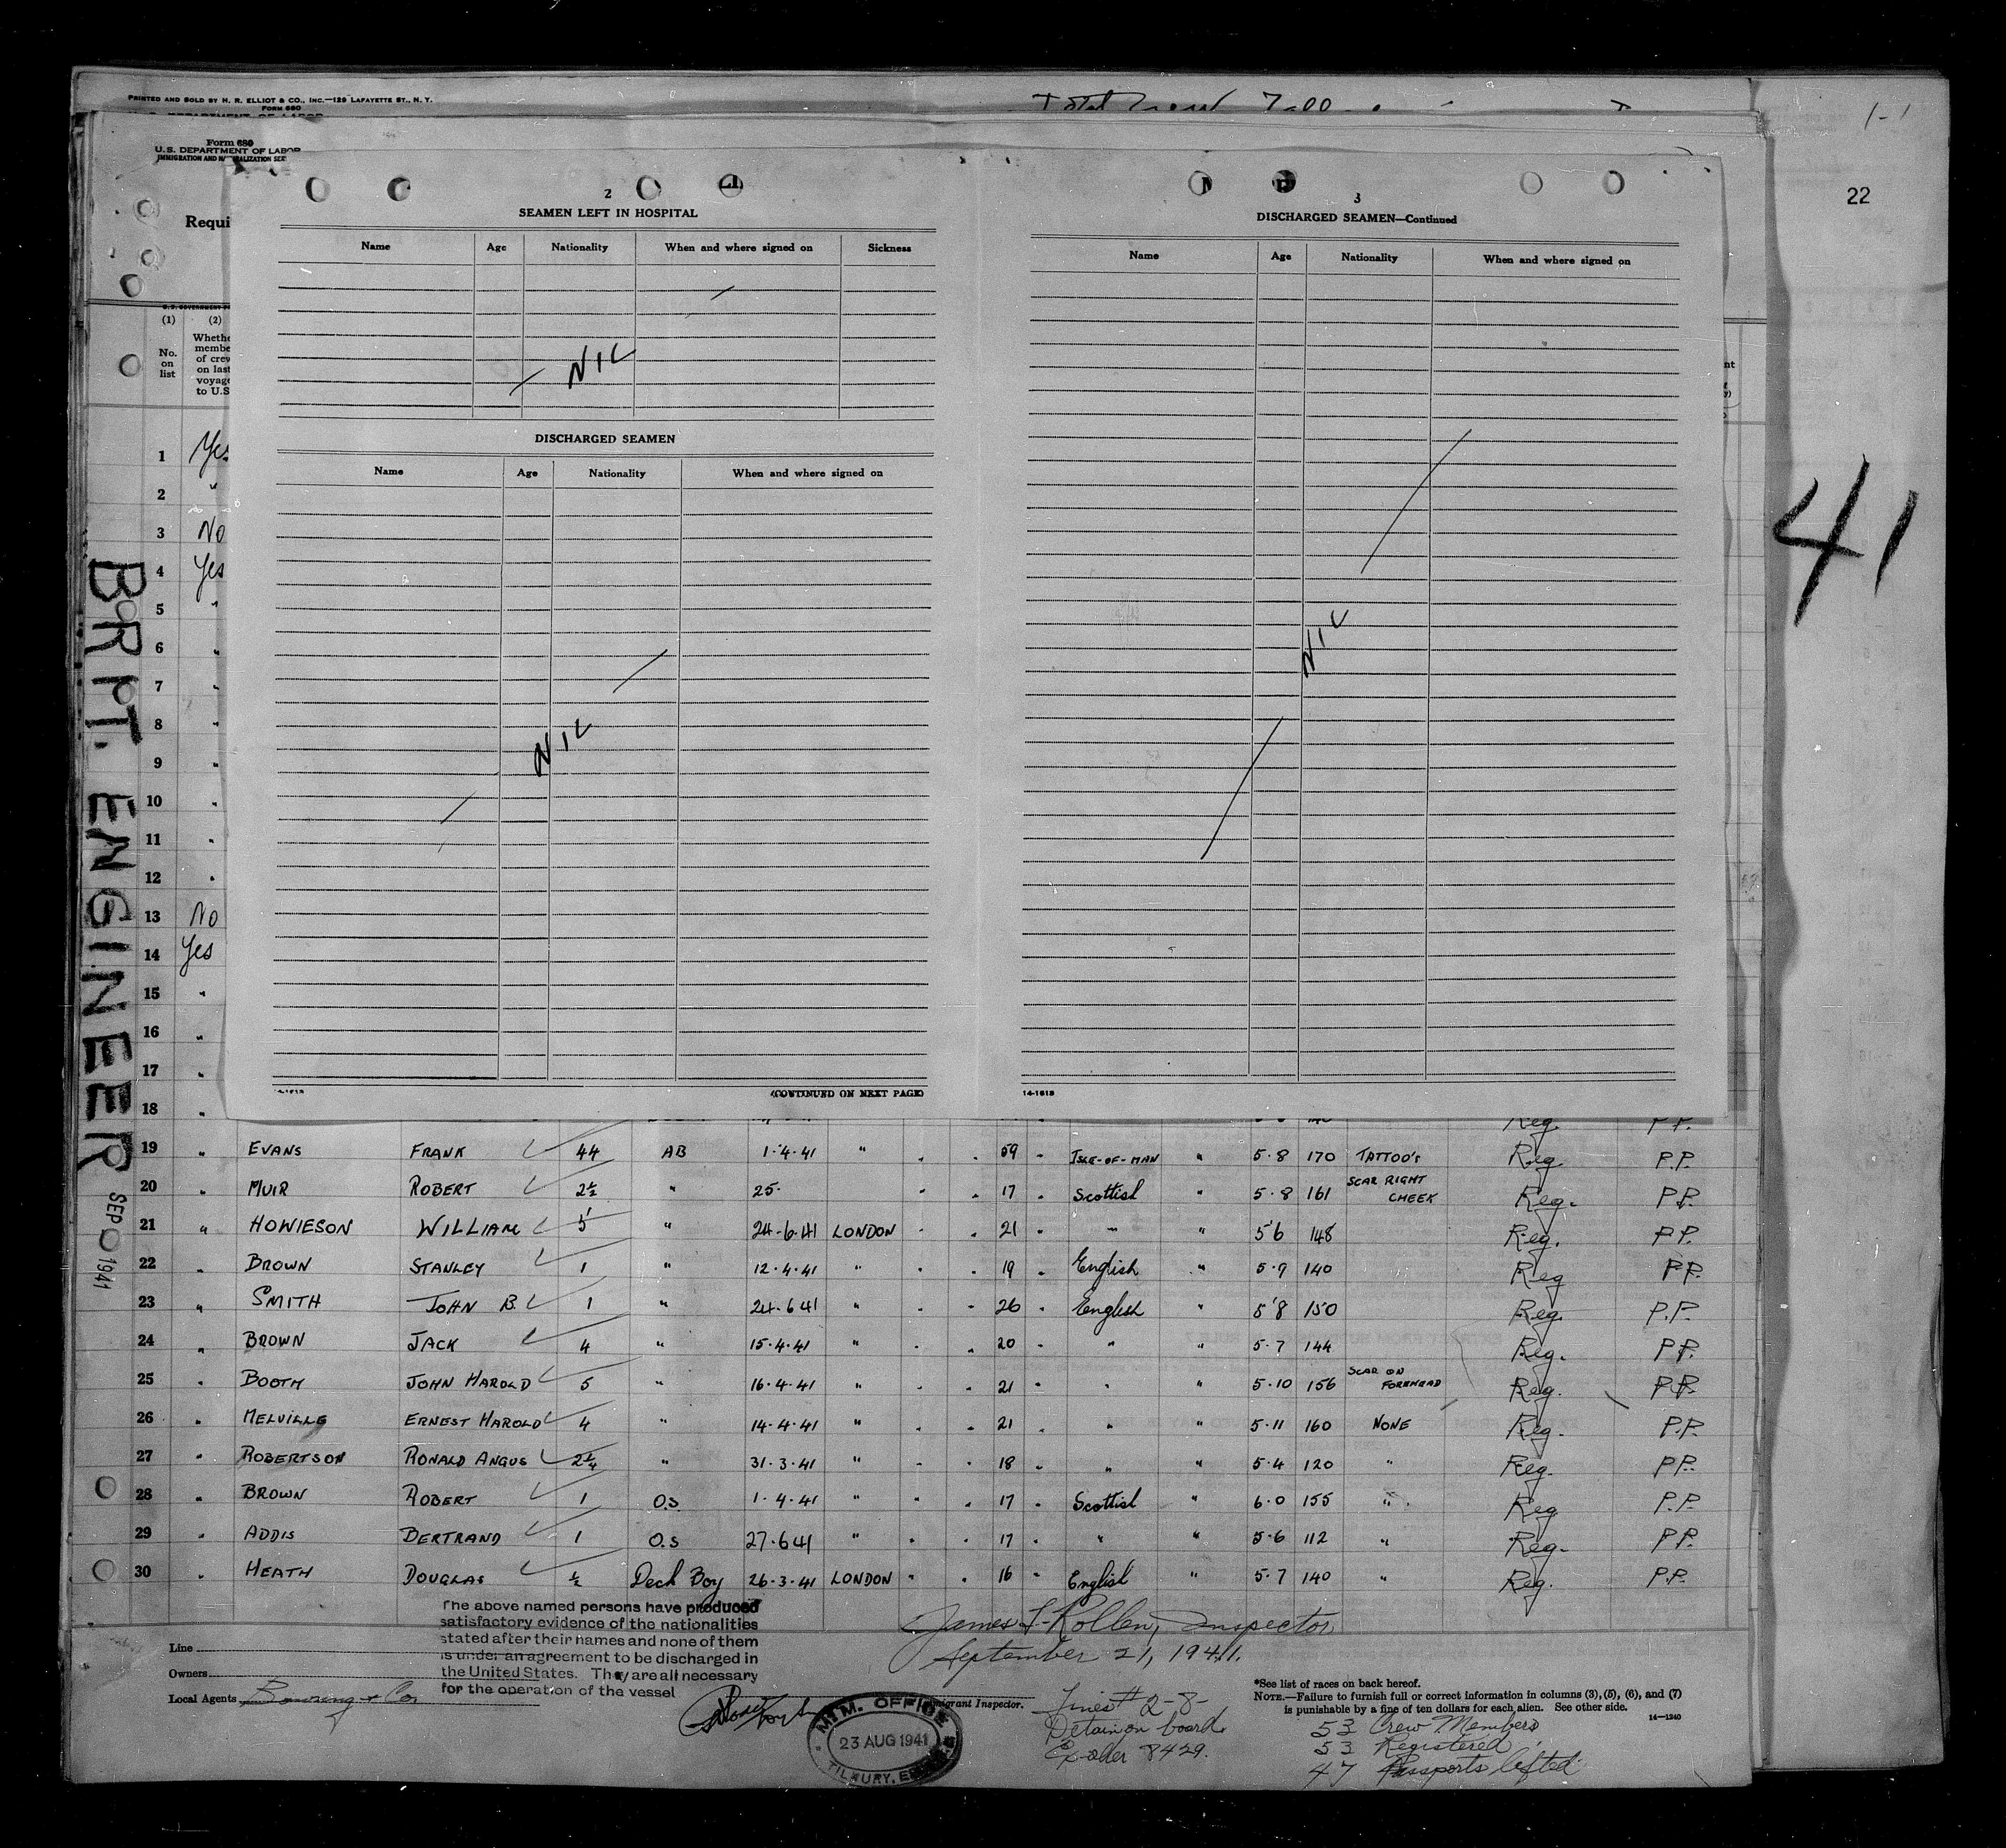 PRINTED AND SOLD BY H. R. ELLIOT & CO., INC.—129 LAFAYETTE ST., N. Y.
FORM 680
Form 680
U.S. DEPARTMENT OF LABOR
Requi
22
41
BRPT. ENGINEER
SEP 1941
2
SEAMEN LEFT IN HOSPITAL
Name Age Nationality When and where signed on Sickness
NIL
DISCHARGED SEAMEN
Name Age Nationality When and where signed on
NIL
(CONTINUED ON NEXT PAGE)
3
DISCHARGED SEAMEN—Continued
Name Age Nationality When and where signed on
NIL
14-1613
(1) (2)
No.
on
list
Whethe
membe
of crew
on last
voyage
to U.S
1 Yes
2 "
3 No
4 Yes
5 "
6 "
7 "
8 "
9 "
10 "
11 "
12 "
13 No
14 Yes
15 "
16 "
17 "
18 " Reg. P.P.
19 " EVANS FRANK 44 AB 1·4·41 " " " 59 " ISLE-OF-MAN " 5·8 170 TATTOO'S Reg P.P.
20 " MUIR ROBERT 2½ " 25· " " 17 " Scottish " 5·8 161 SCAR RIGHT CHEEK Reg. P.P.
21 " HOWIESON WILLIAM 5 " 24-6-41 LONDON " " 21 " " " 5'6 148 Reg. P.P.
22 " BROWN STANLEY 1 " 12·4·41 " " " 19 " English " 5·9 140 Reg P.P.
23 " SMITH JOHN B. 1 " 24·6 41 " " " 26 " English " 5'8 150 Reg. P.P.
24 " BROWN JACK 4 " 15·4·41 " " " 20 " " " 5·7 144 Reg. P.P.
25 " BOOTH JOHN HAROLD 5 " 16·4·41 " " " 21 " " " 5·10 156 SCAR ON FOREHEAD Reg. P.P.
26 " MELVILLE ERNEST HAROLD 4 " 14·4·41 " " " 21 " " " 5·11 160 NONE Reg. P.P.
27 " ROBERTSON RONALD ANGUS 2¼ " 31·3·41 " " " 18 " " " 5·4 120 " Reg. P.P.
28 " BROWN ROBERT 1 O.S 1·4·41 " " " 17 " Scottish " 6·0 155 " Reg P.P.
29 " ADDIS BERTRAND 1 O.S 27·6 41 " " " 17 " " " 5·6 112 " Reg. P.P.
30 " HEATH DOUGLAS ½ Deck Boy 26·3·41 LONDON " " 16 " English " 5·7 140 " Reg. P.P.
The above named persons have produced
satisfactory evidence of the nationalities
stated after their names and none of them
is under an agreement to be discharged in
the United States. They are all necessary
for the operation of the vessel
Line
Owners
Local Agents Bowring & Co.
James F. Rollen, Inspector
September 21, 1941.
Immigrant Inspector.
MM. OFFICE
23 AUG 1941
TILBURY, E
Lines # 2-8-
Detain on board
Ex-order 8429.
*See list of races on back hereof.
NOTE.—Failure to furnish full or correct information in columns (3), (5), (6), and (7)
is punishable by a fine of ten dollars for each alien. See other side.
14—1240
53 Crew Members
53 Registered
47 Passports lifted